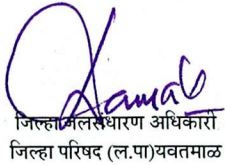 जिल्हा जलसंधारण अधिकारी
जिल्हा परिषद (ल.पा)यवतमाळ